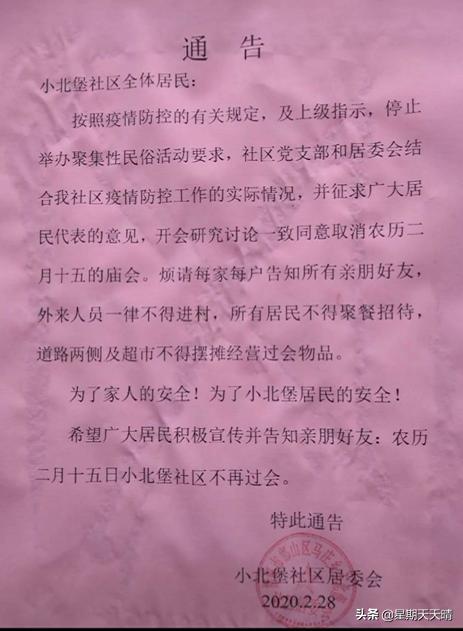 通 告
小北堡社区全体居民：
按照疫情防控的有关规定，及上级指示，停止
举办聚集性民俗活动要求，社区党支部和居委会结
合我社区疫情防控工作的实际情况，并征求广大居
民代表的意见，开会研究讨论一致同意取消农历二
月十五的庙会。烦请每家每户告知所有亲朋好友，
外来人员一律不得进村，所有居民不得聚餐招待，
道路两侧及超市不得摆摊经营过会物品。
为了家人的安全！为了小北堡居民的安全！
希望广大居民积极宣传并告知亲朋好友：农历
二月十五日小北堡社区不再过会。
特此通告
小北堡社区居委会
2020.2.28
头条 @星期天天晴